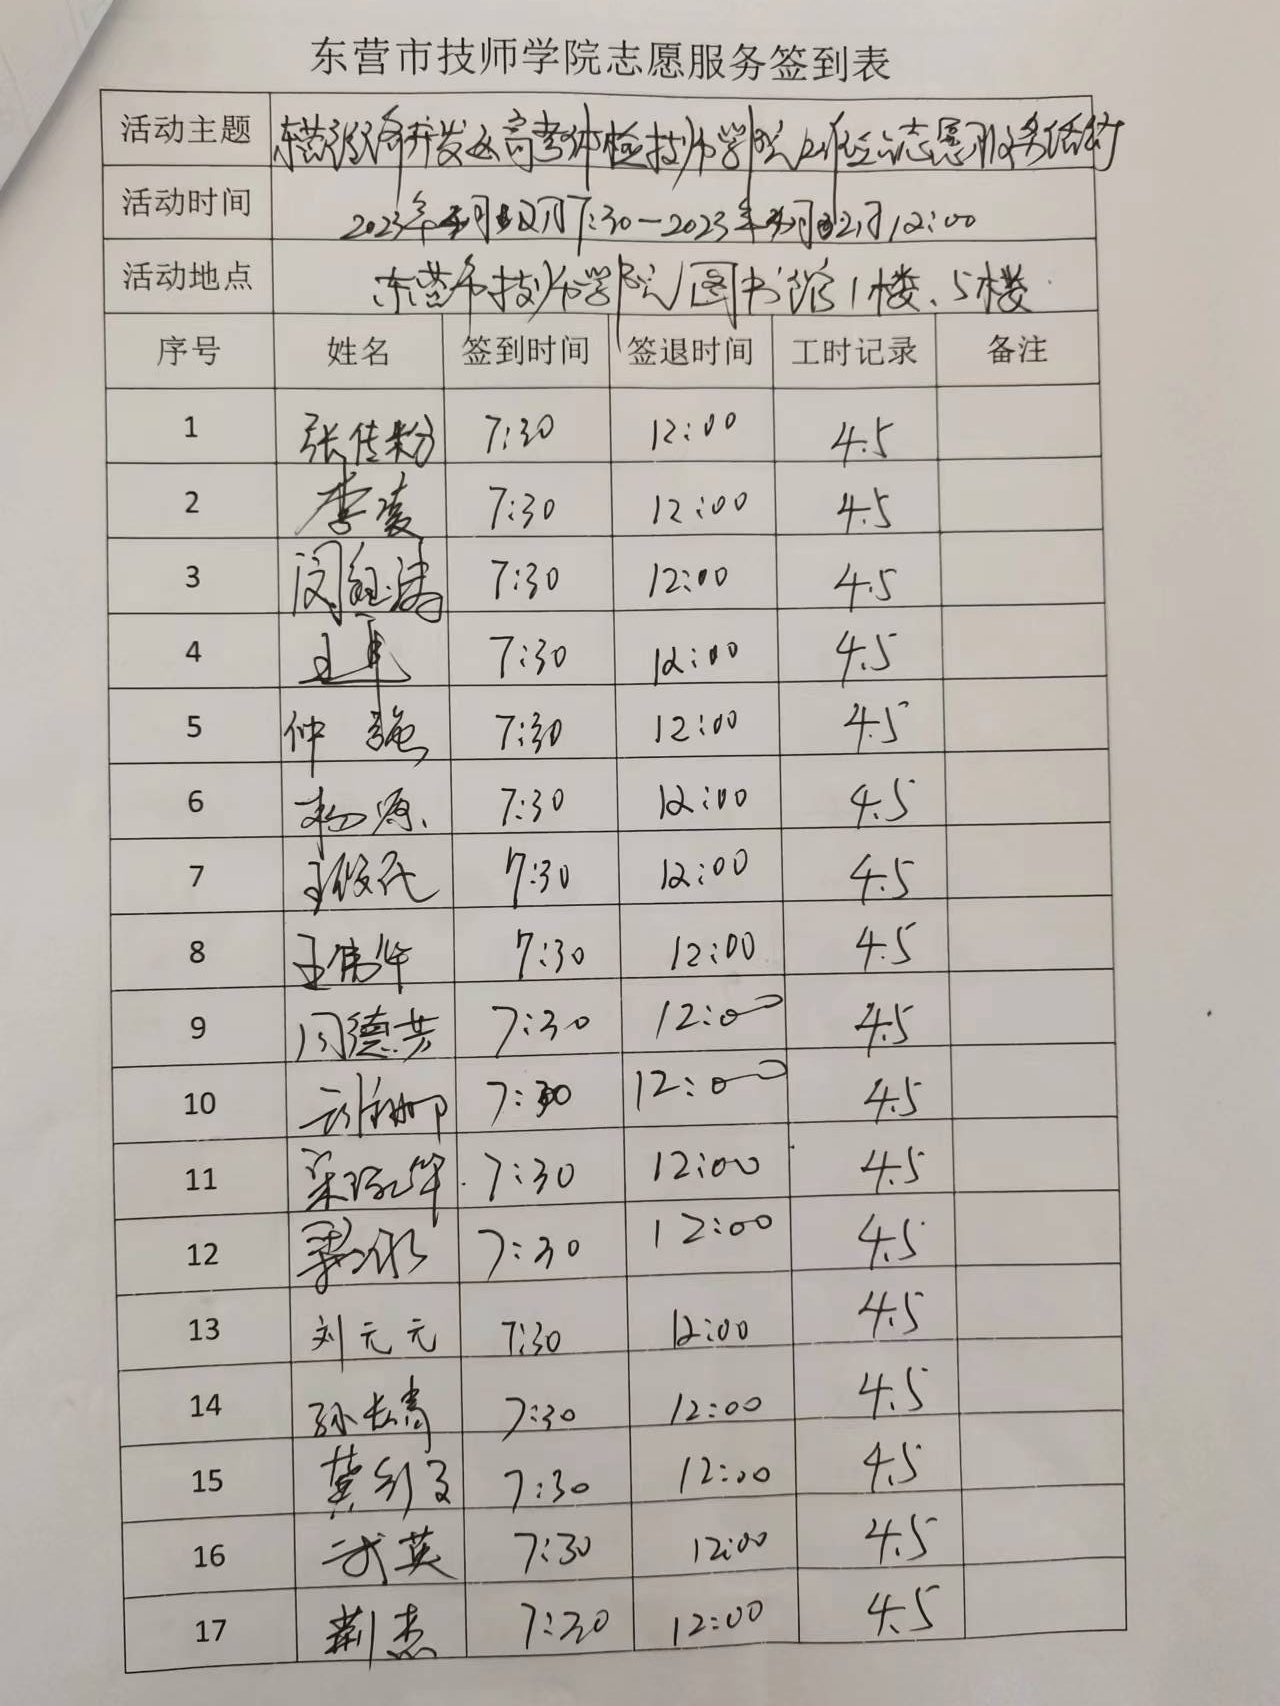 东营市技师学院志愿服务签到表
活动主题 东营经济开发区高考体检技师学院志愿服务活动
活动时间 2023年月7:30-2023年月12:00
活动地点 东营市技师学院图书馆1楼、5楼
序号 姓名 签到时间 签退时间 工时记录 备注
1 张佳粉 7:30 12:00 4.5
2 李凌 7:30 12:00 4.5
3 7:30 12:00 4.5
4 7:30 12:00 4.5
5 仲 7:30 12:00 4.5
6 杨源 7:30 12:00 4.5
7 7:30 12:00 4.5
8 王伟华 7:30 12:00 4.5
9 闫德芳 7:30 12:00 4.5
10 7:30 12:00 4.5
11 7:30 12:00 4.5
12 7:30 12:00 4.5
13 刘元元 7:30 12:00 4.5
14 孙长青 7:30 12:00 4.5
15 7:30 12:00 4.5
16 武英 7:30 12:00 4.5
17 荆杰 7:30 12:00 4.5